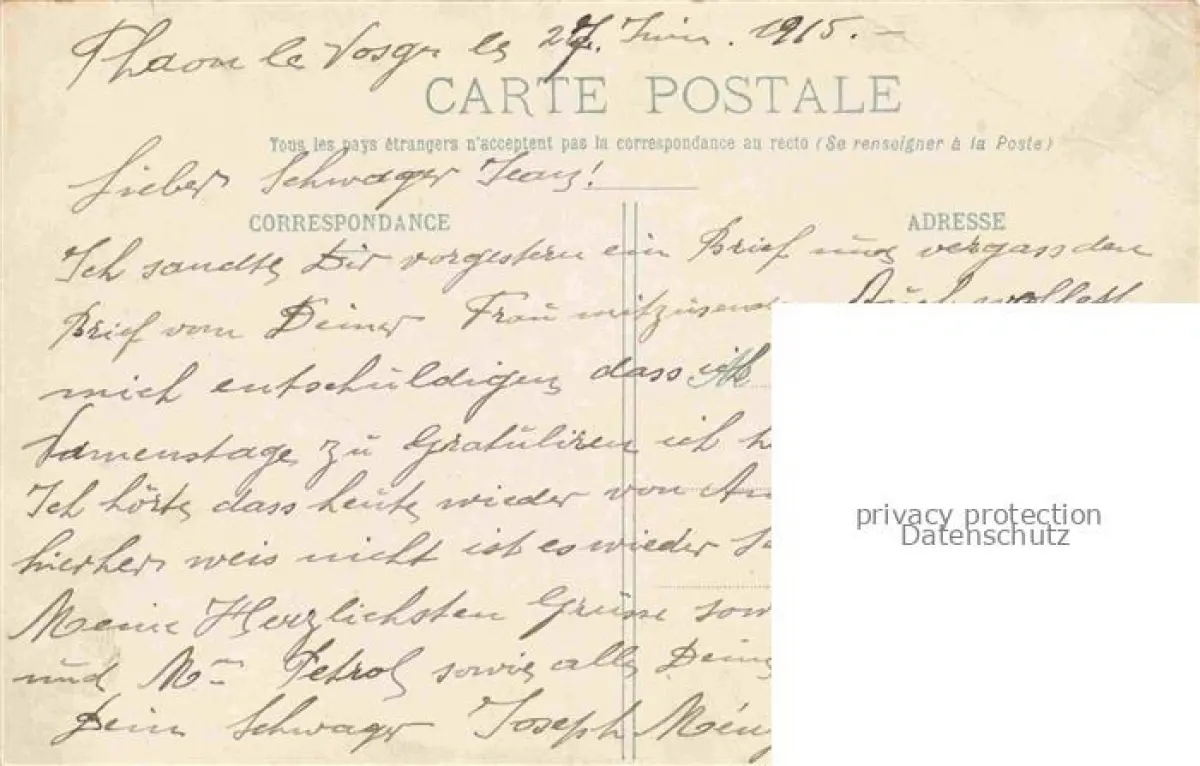 Thaon le Vosges le 27. Juin. 1915.-
CARTE POSTALE
Tous les pays étrangers n'acceptent pas la correspondance au recto (Se renseigner à la Poste)
Lieber Schwager Jean!
CORRESPONDANCE
ADRESSE
Ich sandte Dir vorgestern ein Brief und vergass den
Brief von Deiner Frau mitzusenden Auch wollest
mich entschuldigen dass ich
Namenstage zu Gratuliren ich
Ich hörte dass heute wieder von
hierher weis nicht ist es wieder
Meine Herzlichsten Grüsse sow
und Mme Petrol sowie alle Deine
Dein Schwager Joseph
privacy protection
Datenschutz